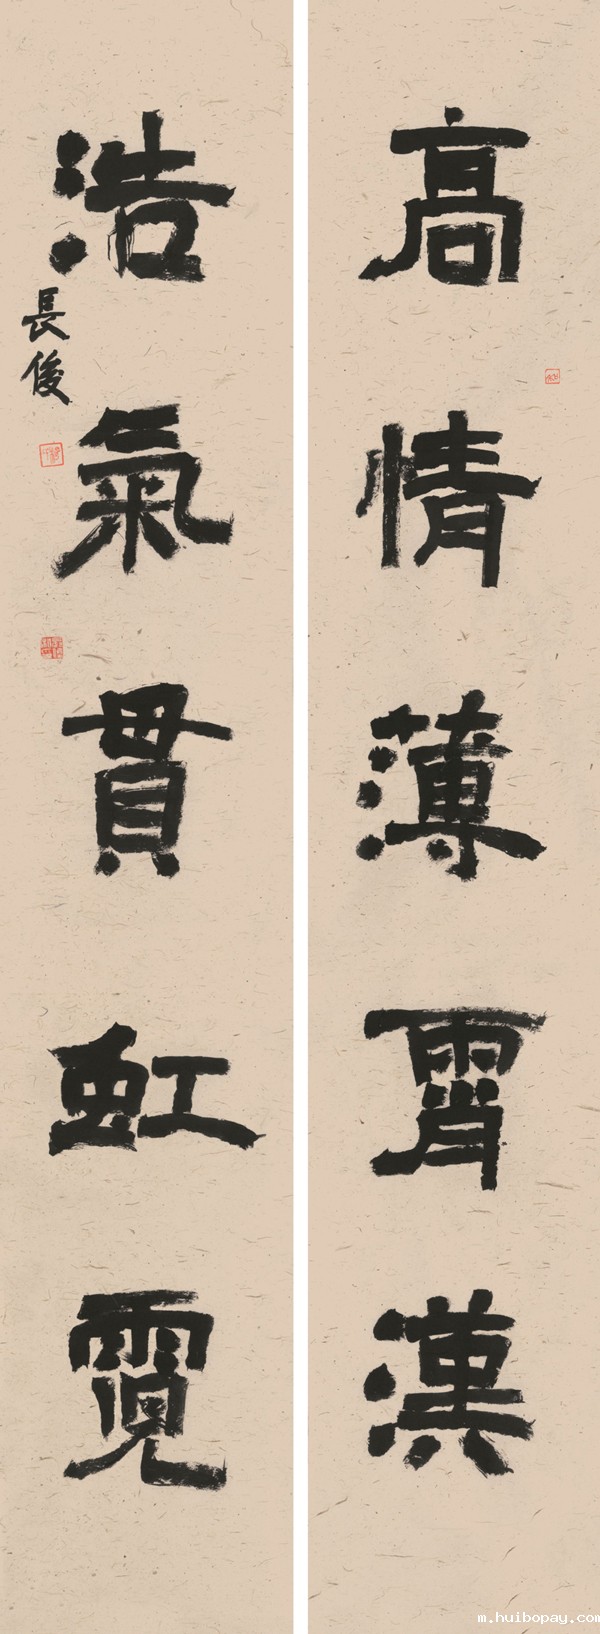 高情薄霄漢
浩氣貫虹霓
長俊
m.huibopay.com